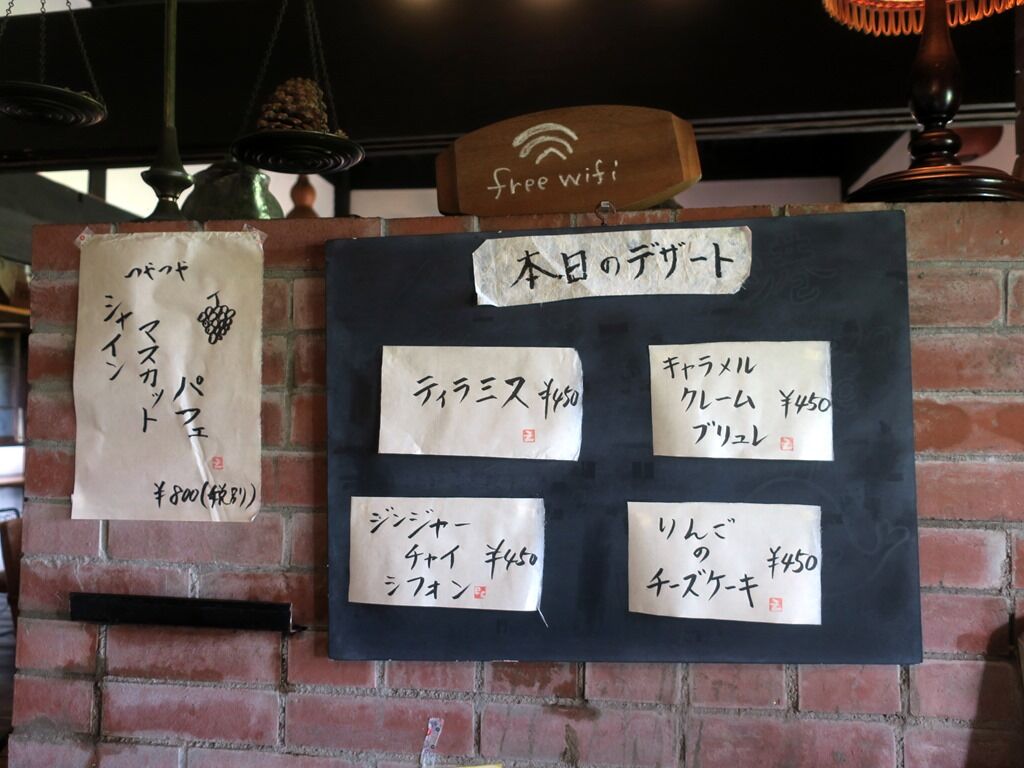 free wifi
つやつや
シャイン
マスカット
パフェ
¥800(税別)
本日のデザート
ティラミス ¥450
キャラメル
クレーム ¥450
ブリュレ
ジンジャー
チャイ ¥450
シフォン
りんご
の ¥450
チーズケーキ